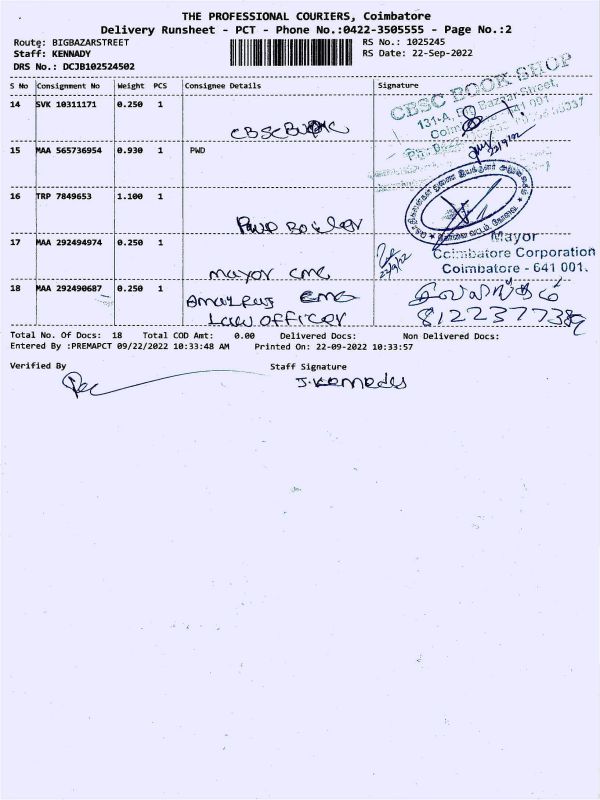 THE PROFESSIONAL COURIERS, Coimbatore
Delivery Runsheet - PCT - Phone No.:0422-3505555 - Page No.:2
Route: BIGBAZARSTREET
RS No.: 1025245
Staff: KENNADY
RS Date: 22-Sep-2022
DRS No.: DCJB102524502
S No Consignment No Weight PCS Consignee Details Signature
14 SVK 10311171 0.250 1
CBSC BOOK SHOP
131-A, Big Bazaar Street,
15 MAA 565736954 0.930 1 PWD
22/9/22
16 TRP 7849653 1.100 1
17 MAA 292494974 0.250 1
Mayor cmc
22/9/22
Mayor
Coimbatore Corporation
Coimbatore - 641 001.
18 MAA 292490687 0.250 1
Law officer
8122377389
Total No. Of Docs: 18 Total COD Amt: 0.00 Delivered Docs: Non Delivered Docs:
Entered By :PREMAPCT 09/22/2022 10:33:48 AM Printed On: 22-09-2022 10:33:57
Verified By Staff Signature